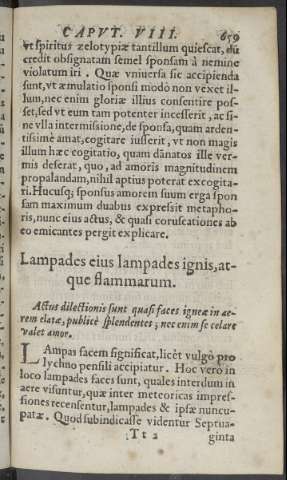 CAPVT. VIII. 659
vt spiritus zelotypiæ tantillum quiescat, dũ
credit obsignatam semel sponsam à nemine
violatum iri. Quæ vniuersa sic accipienda
sunt, vt æmulatio sponsi modò non vexet il-
lum, nec enim gloriæ illius consentire pos-
set, sed vt eum tam potenter incesserit, ac si-
ne vlla intermissione, de sponsa, quam arden-
tissimè amat, cogitare iusserit, vt non magis
illum hæc cogitatio, quam dãnatos ille ver-
mis deserat, quo, ad amoris magnitudinem
propalandam, nihil aptius poterat excogita-
ri. Hucusq; sponsus amorem suum erga spon
sam maximum duabus expressit metapho-
ris, nunc eius actus, & quasi coruscationes ab
eo emicantes pergit explicare.
Lampades eius lampades ignis, at-
que flammarum.
Actus dilectionis sunt quasi faces igneæ in ae-
rem elatæ, publicè splendentes, nec enim se celare
valet amor.
LAmpas facem significat, licèt vulgò pro
lychno pensili accipiatur. Hoc verò in
loco lampades faces sunt, quales interdum in
aere visuntur, quæ inter meteoricas impres-
siones recensentur, lampades & ipsæ nuncu-
patæ. Quod subindicasse videntur Septua-
Tt 2 ginta